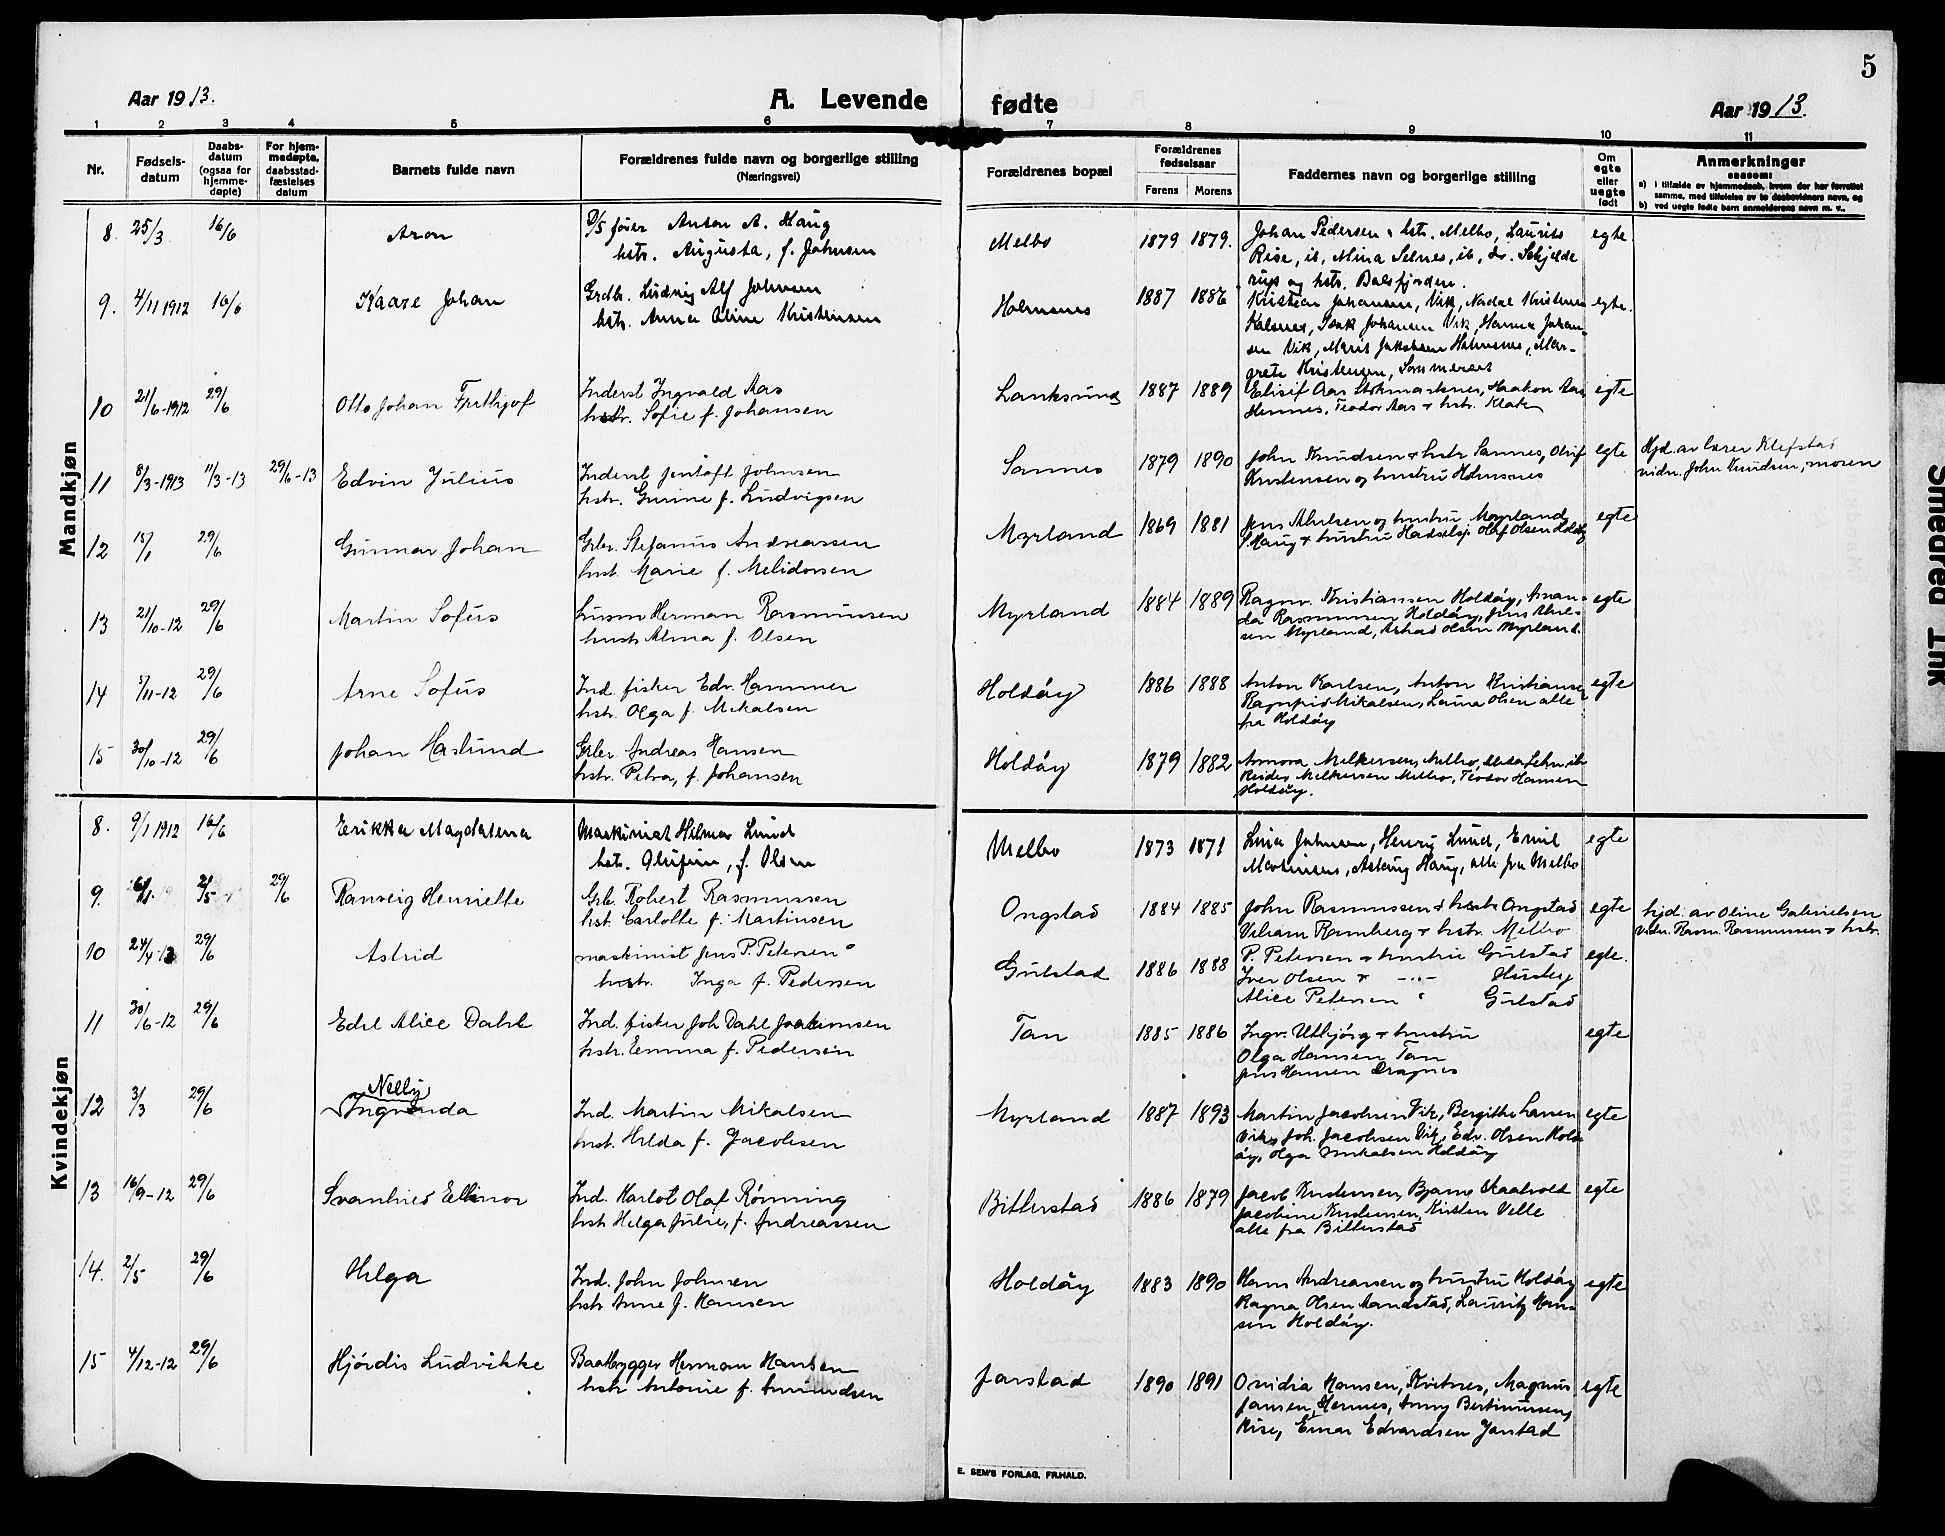 5
Aar 1913.
A. Levende fødte
Aar 1913.
1 2 3 4 5 6 7 8 9 10 11
Nr.
Fødsels-
datum
Daabs-
datum
(ogsaa for
hjemme-
døpte)
For hjem-
medøpte,
daabsstad-
fæstelses
datum
Barnets fulde navn
Forældrenes fulde navn og borgerlige stilling
(Næringsvei)
Forældrenes bopæl
Forældrenes
fødselsaar
Farens Morens
Faddernes navn og borgerlige stilling
Om
egte
eller
uegte
født
Anmerkninger
saasom:
a) i tilfælde av hjemmedaab, hvem der har forrettet
samme, med tilføielse av to daabsvidners navn, og
b) ved uegte fødte barn anmelderens navn m. v.
Mandkjøn
8. 25/3 16/6 Aron D/S fører Anton A. Haug Melbo 1879 1879. Johan Pedersen & hstr. Melbo, Laurits egte.
hstr. Augusta, f. Johnsen Rise, ib, Mina Selnes, ib, dr. Schjelde
rup og hstr. Balsfjorden.
9. 4/11 1912 16/6 Kaare Johan Grdbr. Ludvig Alf Johnsen Holmsnes 1887 1886 Kristian Johansen, Vik, Nordal Kristensen egte.
hstr. Anna Oline Kristensen Kalsnes, Isak Johansen Vik, Hanna Johan-
sen Vik, Marit Jakobsen Holmsnes, Mar-
grete Kristensen, Sommerset
10 21/6-1912 29/6 Otto Johan Frithjof Inderst Ingvald Aas Lanksund 1887 1889 Elisif Aas Stokmarknes, Haakon Aas egte
hstr. Sofie f. Johansen Hennes, Teodor Aas & hstr. Klaken
11 8/3-1913 11/3-13 29/6-13 Edvin Julius Inderst Jentoft Johnsen Sannes 1879 1890 John Knudsen & hstr Sannes, Oluf egte Hjd. av lærer Klefstad
hstr. Gurine f. Ludvigsen Kristensen og hustru Holmsnes vidn. John Knudsen, moren
12 15/1 29/6 Gunnar Johan Grbr. Stefanus Andreassen Myrland 1869 1881 Jens Ahlsen og hustru Myrland egte
hust. Marie f. Melidorsen Haug & hustru Hadsel, Olaf Olsen Holdøy
13 21/10-12 29/6 Martin Sofus Husm Herman Rasmussen Myrland 1884 1889 Ragnv. Kristiansen Holdøy, Aman- egte
hustr Alma f. Olsen da Rasmussen Holdøy, Jens Ahl-
sen Myrland, Olsen Myrland.
14 5/11-12 29/6 Arne Sofus Ind. fisker Edv. Hammer Holdøy 1886 1888 Anton Karlsen, Anton Kristiansen egte
hstr. Olga f. Mikalsen Ragnfrid Mikalsen, Laura Olsen alle
fra Holdøy
15 30/10-12 29/6 Johan Haslund Grbr. Andreas Hansen Holdøy 1879 1882 Melkersen, Melbo, egte
hstr. Petra, f. Johansen Reidar Melkersen Melbo, Teodor Hansen
Holdøy.
Kvindekjøn
8. 9/1 1912 16/6 Erikka Magdalena Maskinist Hilmar Lund Melbo 1873 1871 Lina Johnsen, Henrig Lund, Emil egte
hstr. Olufine, f. Olsen Martinsens, Aslaug Haug, alle fra Melbo
9. 2/5 29/6 Ranveig Henriette Grb. Robert Rasmussen Ongstad 1884 1885 John Rasmussen & hstr Ongstad egte hjd. av Oline Gabrielsen
hst. Carlotte f. Martinsen Viliam Ramberg & hstr. Melbo Vidn. Rasm. Rasmussen & hstr.
10 24/4-13 29/6 Astrid maskinist Jens P. Petersen Gulstad 1886 1888 P. Petersen & hustru Gulstad egte.
hstr. Inga f. Pedersen Iver Olsen & -"- Husby
Alice Petersen Gulstad
11 30/6-12 29/6 Edel Alice Dahl Ind. fisker Joh Dahl Joakimsen Tan 1885 1886 Ingv. Utbjørg & hustru egte
hstr. Emma f. Pedersen Olga Hansen Tan
Jens Hansen Dragnes
12 3/3 29/6 Nelly Ingvanda Ind. Martin Mikalsen Myrland 1887 1893 Martin Jacobsen Vik, Bergithe Larsen egte
hust. Hilda f. Jacobsen Vik, Joh. Jacobsen Vik, Edv. Olsen Hold-
øy, Olga Mikalsen Holdøy
13 16/9-12 29/6 Svanhild Ellinor Ind. Harlot Olaf Rønning Bitterstad 1886 1879 Jacob Kristensen, Bjarne Skaatvold egte
hstr Helga Julie, f. Andreassen Jacobine Kristensen, Kirsten Velle
alle fra Bitterstad
14. 2/5 29/6 Helga Ind. John Johnsen Holdøy 1883 1890 Hans Andreassen og hustru Holdøy egte
hstr Anne f. Hansen Ragna Olsen Sandstad, Lauritz Han-
sen Holdøy.
15 4/12-12 29/6 Hjørdis Ludvikke Baatbygger Herman Hansen Jarstad 1890 1891 Ovidia Hansen, Kvitnes, Magnus egte
hstr Antonie f. Amundsen Jansen, Hennes, Anny Bertinussen,
Rise, Einar Edvardsen Jarstad
E. SEM'S FORLAG, FR.HALD.